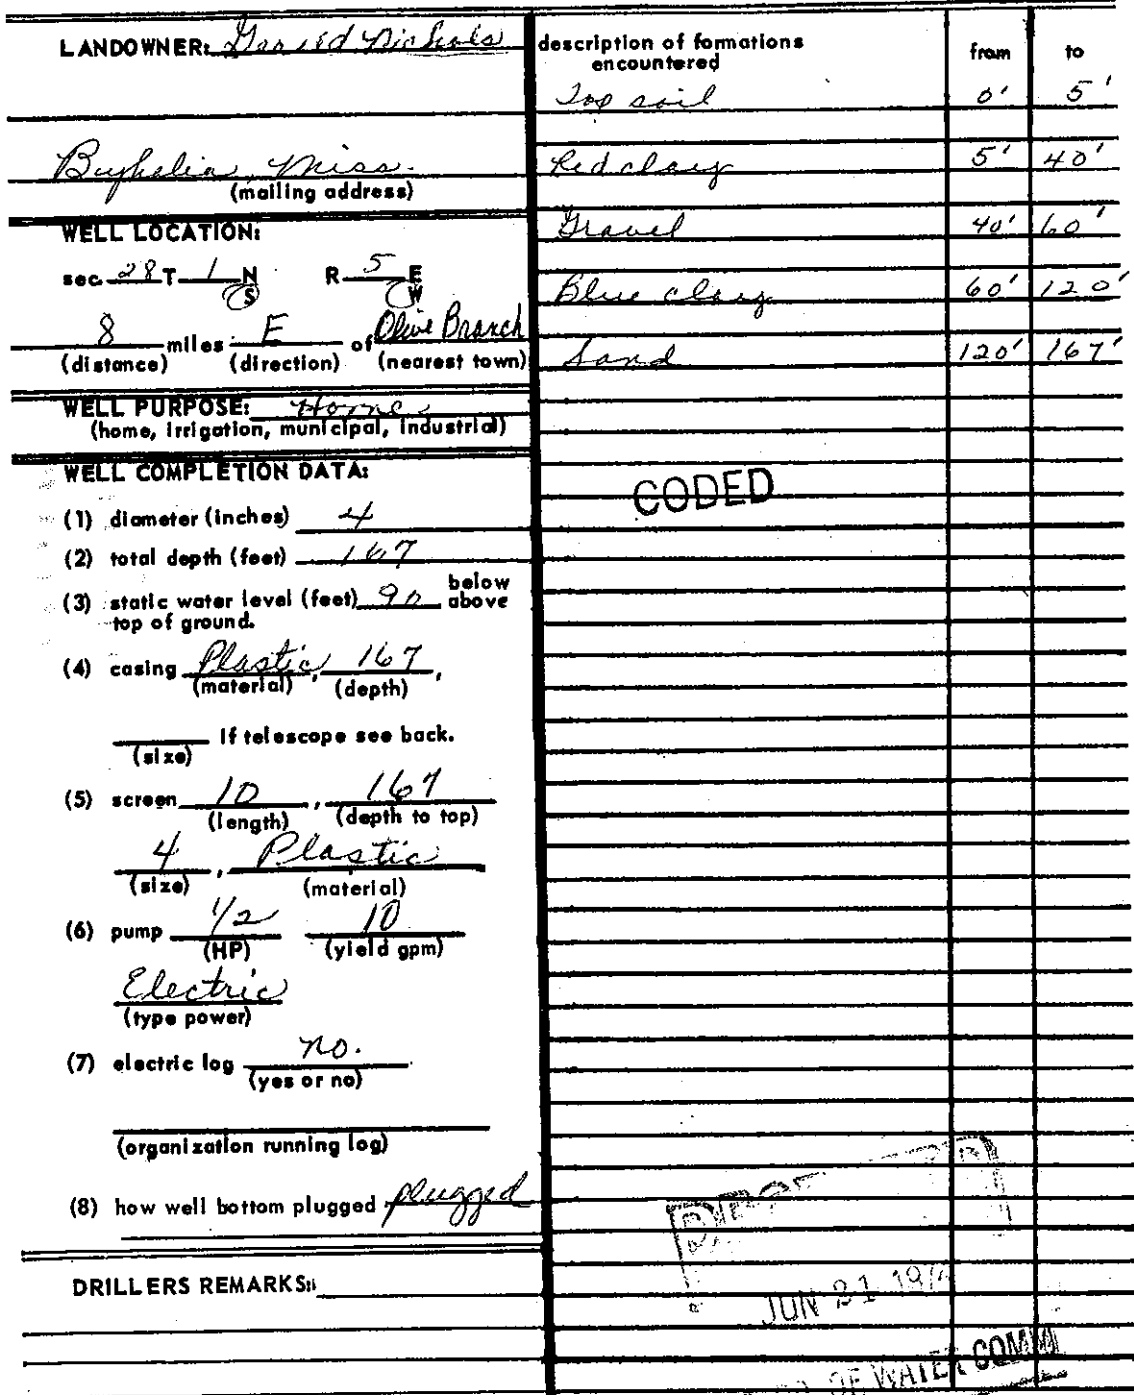 LANDOWNER: Nichols
Byhalia, Miss.
(mailing address)
WELL LOCATION:
sec. 28 T 1 N S R 5 E W
8 miles E of Olive Branch
(distance) (direction) (nearest town)
WELL PURPOSE: Home
(home, irrigation, municipal, industrial)
WELL COMPLETION DATA:
(1) diameter (inches) 4
(2) total depth (feet) 167
(3) static water level (feet) 90 below above
top of ground.
(4) casing Plastic, 167,
(material) (depth)
If telescope see back.
(size)
(5) screen 10, 167
(length) (depth to top)
4, Plastic
(size) (material)
(6) pump 1/2 10
(HP) (yield gpm)
Electric
(type power)
(7) electric log no.
(yes or no)
(organization running log)
(8) how well bottom plugged plugged
DRILLERS REMARKS:
description of formations encountered from to
Top soil 0' 5'
Red clay 5' 40'
Gravel 40' 60'
Blue clay 60' 120'
Sand 120' 167'
CODED
JUN 21
OF WATER COMM